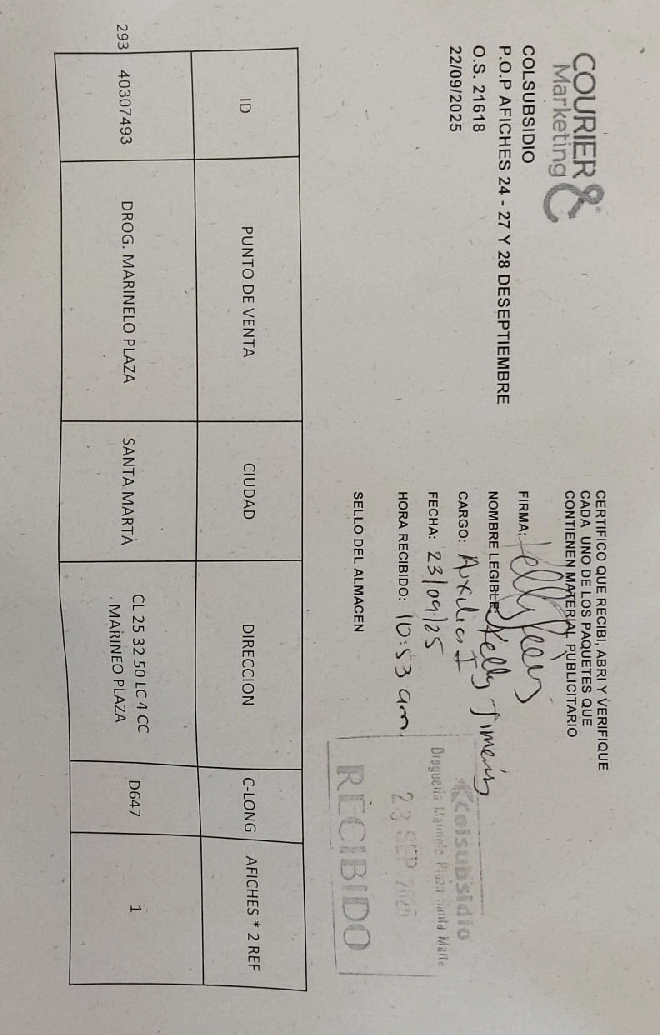 COURIER &
Marketing
COLSUBSIDIO
P.O.P AFICHES 24 - 27 Y 28 DESEPTIEMBRE
O.S. 21618
22/09/2025
CERTIFICO QUE RECIBI, ABRI Y VERIFIQUE
CADA UNO DE LOS PAQUETES QUE
CONTIENEN MATERIAL PUBLICITARIO
FIRMA:
NOMBRE LEGIBLE: Kelly Jimenez
CARGO: Auxiliar I
FECHA: 23/09/25
HORA RECIBIDO: 10:53 am
SELLO DEL ALMACEN
colsubsidio
Droguería Marinelo Plaza Santa Marta
23 SEP 2025
RECIBIDO
ID PUNTO DE VENTA CIUDAD DIRECCION C-LONG AFICHES * 2 REF
293 40307493 DROG. MARINELO PLAZA SANTA MARTA CL 25 32 50 LC 4 CC D647 1
MARINEO PLAZA